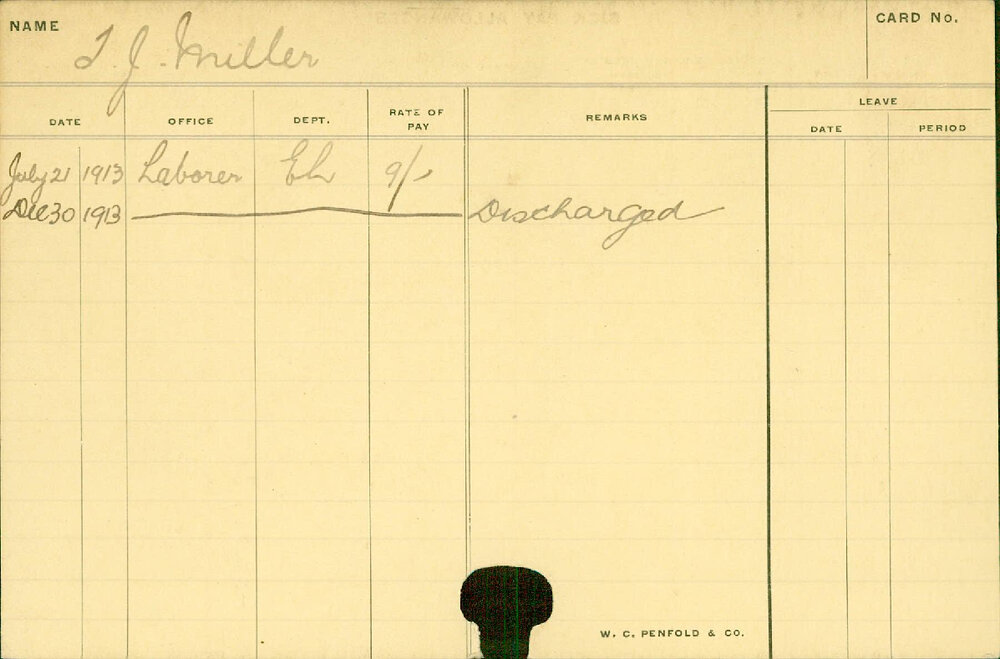 NAME T. J. Miller CARD No.
LEAVE
DATE OFFICE DEPT. RATE OF PAY REMARKS DATE PERIOD
July 21 1913 Laborer EL 9/-
Dec 30 1913 Discharged
W. C. PENFOLD & CO.